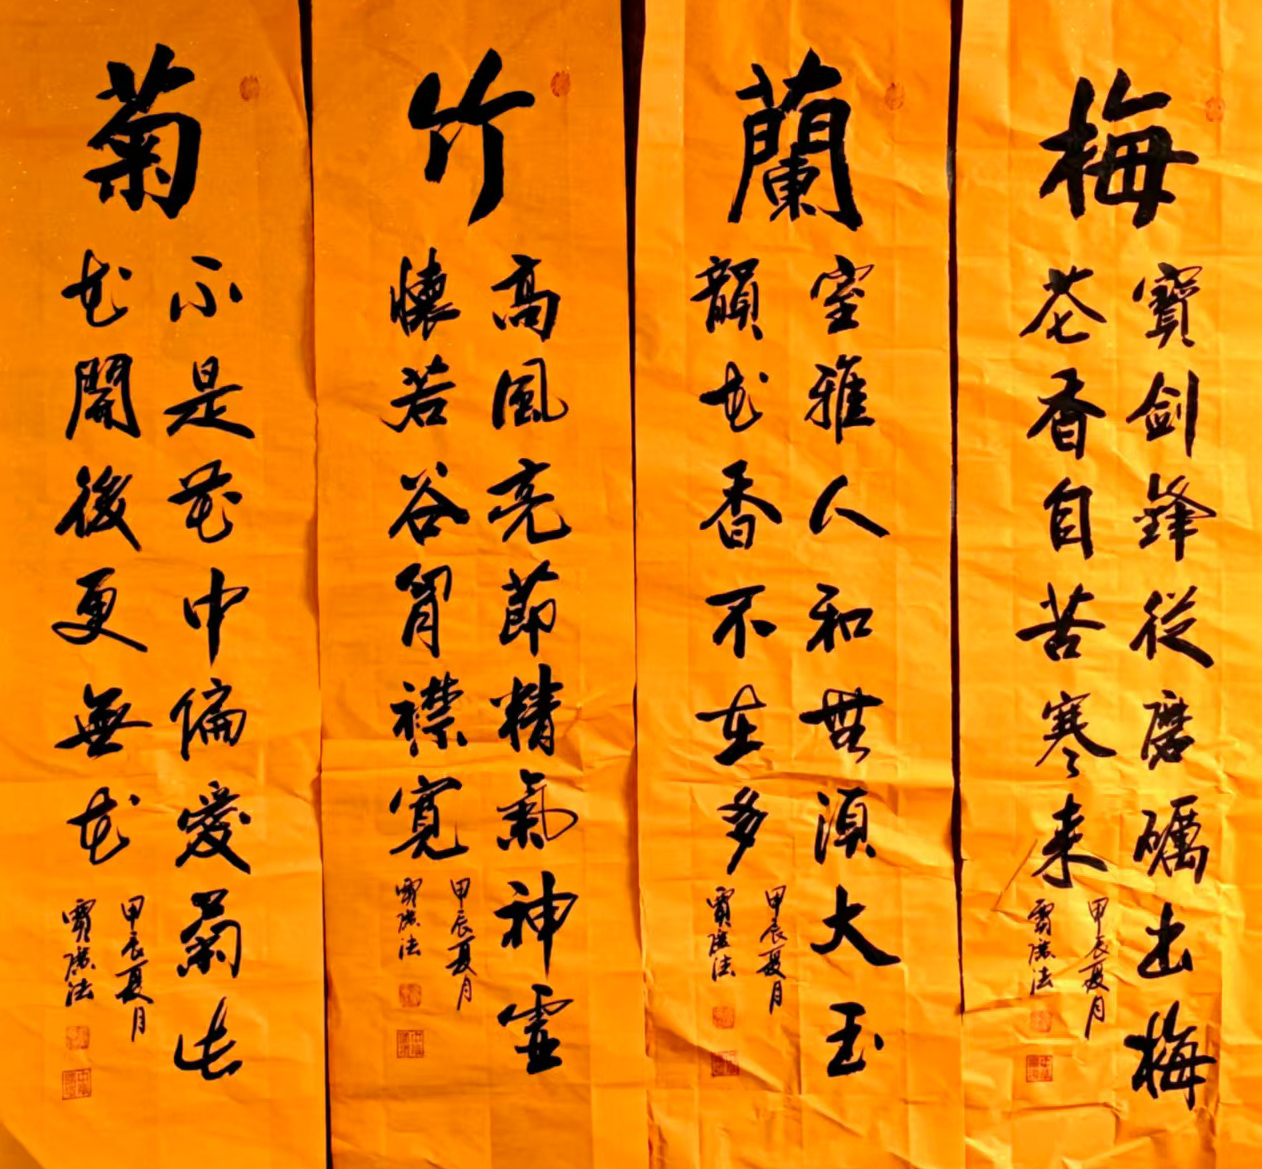 梅
寶劍鋒從磨礪出梅
花香自苦寒来
甲辰夏月
蘭
室雅人和無須大玉
韻花香不在多
甲辰夏月
竹
高風亮節精氣神虛
懷若谷胷襟寬
甲辰夏月
菊
不是花中偏愛菊此
花開後更無花
甲辰夏月